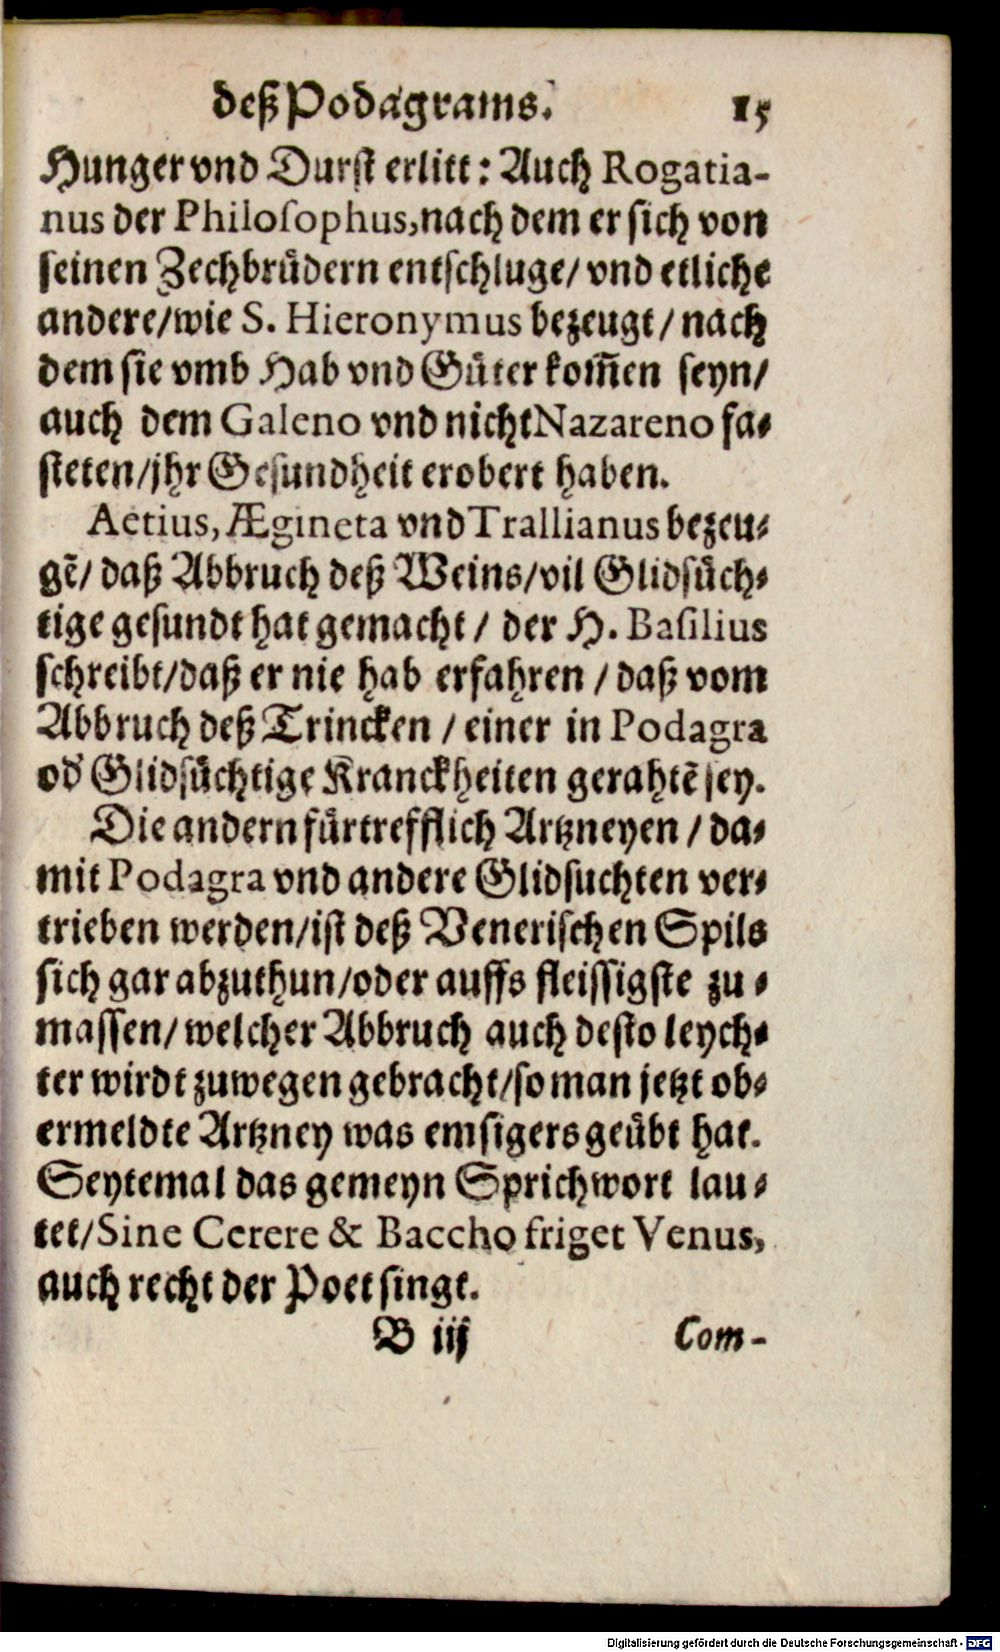 deß Podagrams. 15
Hunger vnd Durst erlitt: Auch Rogatia-
nus der Philosophus, nach dem er sich von
seinen Zechbruͤdern entschluge/ vnd etliche
andere/wie S. Hieronymus bezeugt/ nach
dem sie vmb Hab vnd Guͤter kom̃en seyn/
auch dem Galeno vnd nicht Nazareno fa-
steten/jhr Gesundheit erobert haben.
Aetius, Ægineta vnd Trallianus bezeu-
gẽ/ daß Abbruch deß Weins/vil Glidsuͤch-
tige gesundt hat gemacht/ der H. Basilius
schreibt/daß er nie hab erfahren/ daß vom
Abbruch deß Trincken/ einer in Podagra
od' Glidsuͤchtige Kranckheiten gerahtẽ sey.
Die andern fuͤrtrefflich Artzneyen/ da-
mit Podagra vnd andere Glidsuchten ver-
trieben werden/ist deß Venerischen Spils
sich gar abzuthun/oder auffs fleissigste zu-
massen/ welcher Abbruch auch desto leych-
ter wirdt zuwegen gebracht/so man jetzt ob-
ermeldte Artzney was emsigers geuͤbt hat.
Seytemal das gemeyn Sprichwort lau-
tet/Sine Cerere & Baccho friget Venus,
auch recht der Poet singt.
B iij Com-
Digitalisierung gefördert durch die Deutsche Forschungsgemeinschaft - DFG